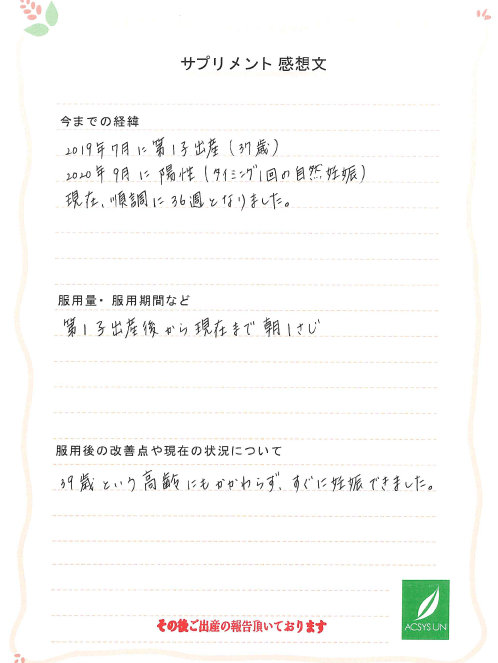 サプリメント 感想文
今までの経緯
2019年7月に第1子出産(37歳)
2020年9月に陽性(タイミング1回の自然妊娠)
現在、順調に36週となりました。
服用量・服用期間など
第1子出産後から現在まで朝1さじ
服用後の改善点や現在の状況について
39歳という高齢にもかかわらず、すぐに妊娠できました。
ACSYSUN
その後ご出産の報告頂いております